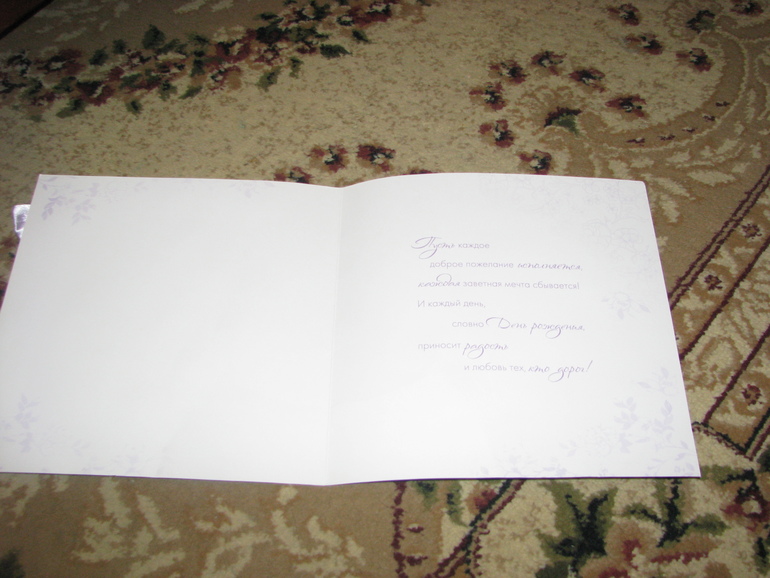 Пусть каждое
доброе пожелание исполняется,
каждая заветная мечта сбывается!
И каждый день,
словно День рождения,
приносит радость
и любовь тех, кто дорог!